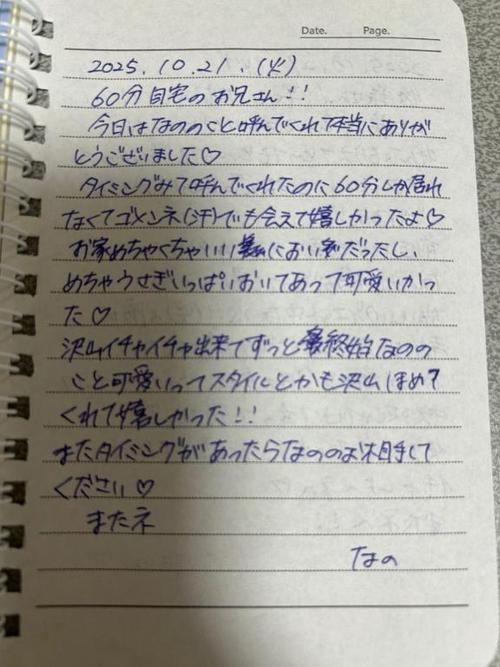 Date. Page.
2025.10.21.(火)
60分自宅のお兄さん!!
今日はなののこと呼んでくれて本当にありが
とうございました♡
タイミングみて呼んでくれたのに60分しか居れ
なくてゴメンネ(汗)でも会えて嬉しかったよ♡
お家めちゃくちゃいいにおいだったし、
めちゃうさぎいっぱいおいてあって可愛いかっ
た♡
沢山イチャイチャ出来てずっと終始なのの
こと可愛いってスタイルとかも沢山ほめて
くれて嬉しかった!!
またタイミングがあったらなののお相手して
ください♡
またネ
なの